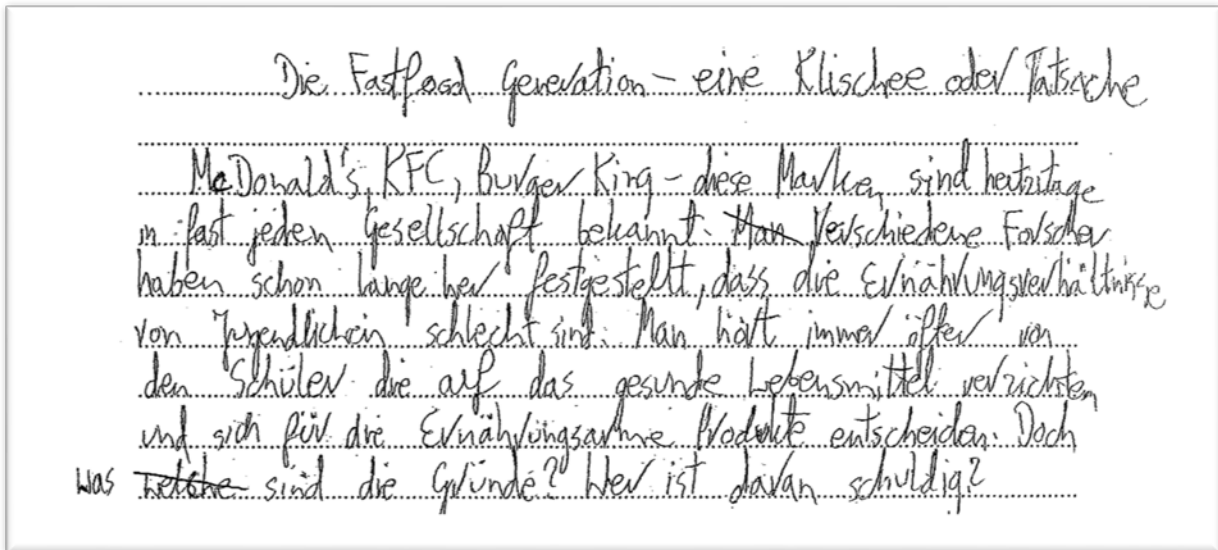 Die Fastfood Generation – eine Klischee oder Tatsache
McDonald's, KFC, Burger King – diese Marken sind heitzitage
in fast jeden Gesellschaft bekannt. Man Verschiedene Forscher
haben schon lange her festgestellt, dass die Ernährungsverhältnisse
von Jugendlichen schlecht sind. Man hört immer öfter von
den Schüler die auf das gesunde Lebensmittel verzichten
und sich für die Ernährungsarme Produkte entscheiden. Doch
was welche sind die Gründe? Wer ist daran schuldig?